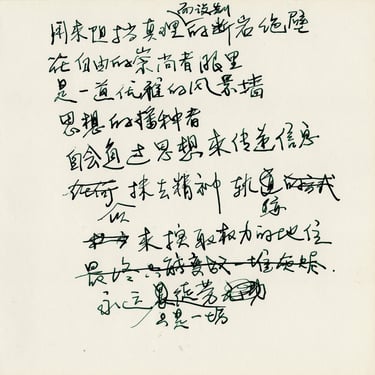 而设制
用来阻挡真理的断岩绝壁
在自由的崇尚者眼里
是一道优雅的风景墙
思想的播种者
自会通过思想来传递信息
任何 抹去精神轨道的方式
以 迹
来换取权力的地位
最终 一堆
永远 是徒劳
只是一场